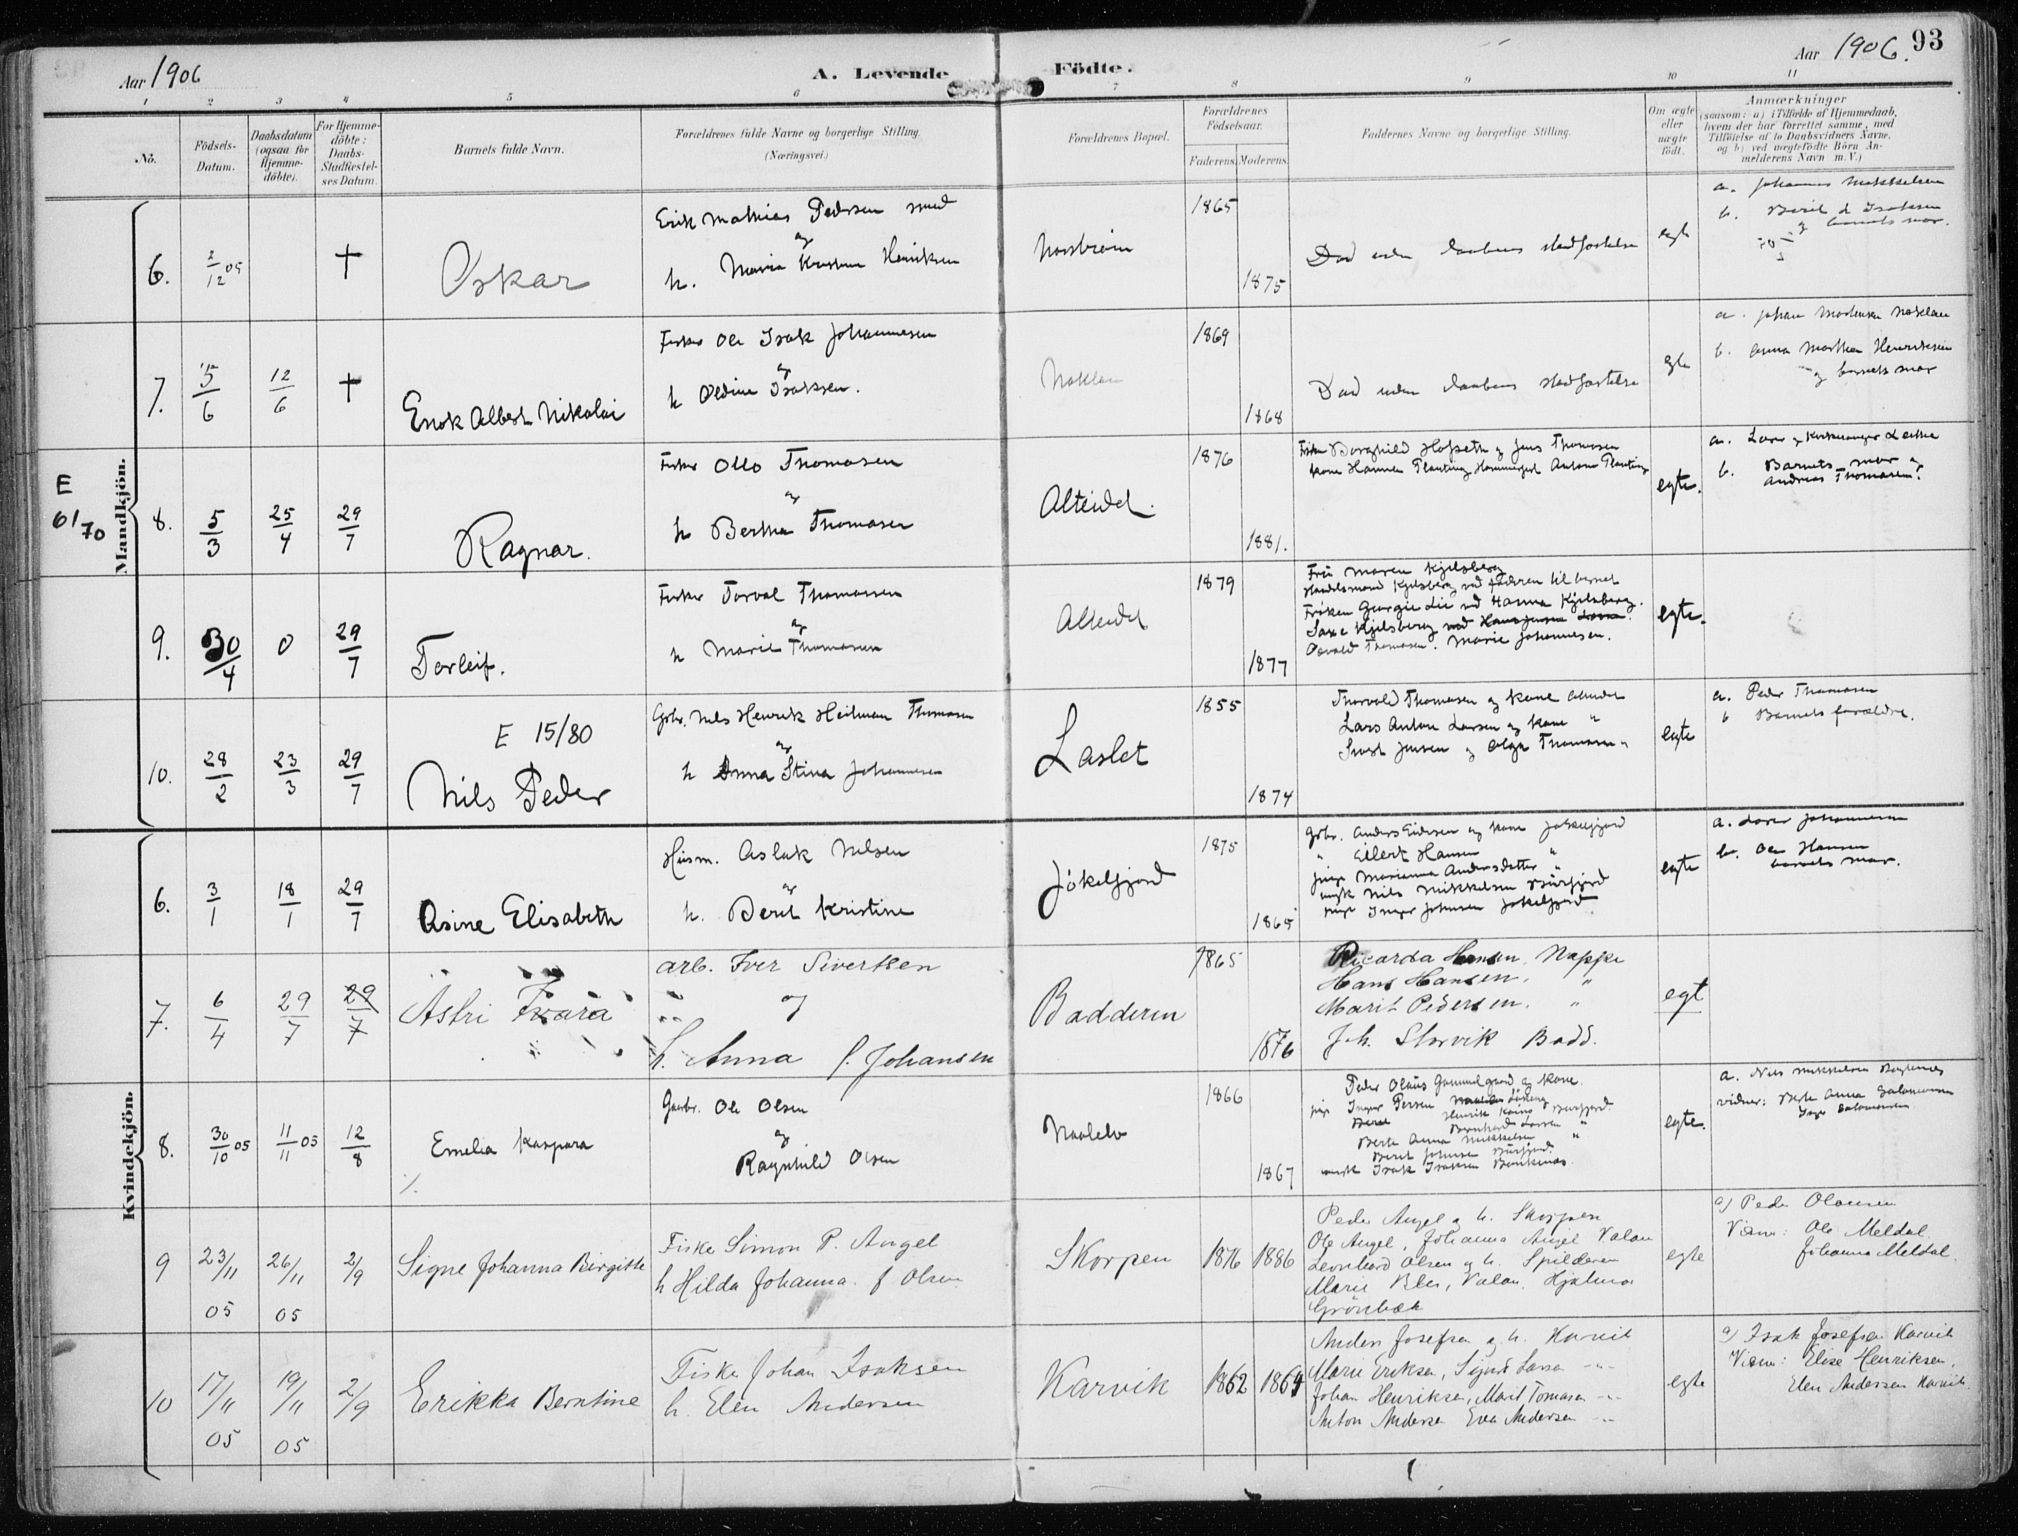 Aar 1906
A. Levende Födte.
Aar 1906. 93
1 2 3 4 5 6 7 8 9 10 11
No.
Födsels-
Datum.
Daabsdatum
(ogsaa for
Hjemme-
döbte).
For Hjemme-
döbte:
Daabs-
Stadfæstel-
ses Datum.
Barnets fulde Navn.
Forældrenes fulde Navne og borgerlige Stilling.
(Næringsvei.)
Forældrenes Bopæl.
Forældrenes
Födselsaar.
Faderens. Moderens.
Faddernes Navne og borgerlige Stilling.
Om ægte
eller
uægte
født.
Anmærkninger
(saasom: a) i Tilfælde af Hjemmedaab,
hvem der har forrettet samme, med
Tilföielse af to Daabsvidners Navne,
og b) ved uægtefödte Börn An-
melderens Navn m. V.)
Mandkjön.
6. 2/12 05 †
Oskar
Erik Mathias Pedersen
og
h. Maria Henriksen
1865
1875
Død uden daabens stadfæstelse
egte
a. Johannes Mikkelsen
b. Berit d Isaksen
og barnets mor.
7. 5/6 12/6 †
Enok Albert Nikolai
Fisker Ole Isak Johannesen
og
h Oldine Isaksen.
1869
1868
Død uden daabens stadfæstelse
egte
a. Johan
b. Anna Marthea Henriksen
og barnets mor
E
61/70
8. 5/3 25/4 29/7
Ragnar.
Fisker Otto Thomasen
og
h Bertha Thomasen
Alteidet.
1876
1881.
Borghild Hofseth og Jens Thomasen
egte.
a. Lærer og Kirkesanger
b. Barnets mor og
Andreas Thomasen.
9. 30/4 0 29/7
Torleif.
Fisker Torval Thomassen
og
h Marie Thomasen
Alteidet
1879
1877
Fru Maren Kjelsberg
Handelsmand Kjelsberg ved faderen til barnet
Frøken Georgie Lie ved Hanna Kjelsberg.
Osvald Thomasen. Marie Johannesen.
egte.
10. 28/2 23/3 29/7
E 15/80
Nils Peder
Gbr. Nils Henrik Heitman Thomasen
og
h Anna Stina Johannesen
Laslet
1855
1874
Thorvald Thomasen og kone Alteidet
Lars Anton Larsen og kone "
Jensen og Olga Thomasen "
egte
a. Peder Thomasen
b Barnets forældre.
Kvindekjön.
6. 3/1 18/1 29/7
Asine Elisabeth
Husm. Aslak Nilsen
og
h. Berit Kristine
Jøkelfjord
1875
1865
Gbr. Anders Eidesen og kone Jøkelfjord
" Eilert Hansen "
pige Marianna Andersdatter "
ungk Nils Mikkelsen Burfjord
pige Inger Johnsen Jøkelfjord
egte
a. Lærer Johannesen
b. Ole Hansen
barnets mor.
7. 6/4 29/7 29/7
Astri Ivara
arb. Iver Sivertsen
og
h. Anna f. Johansen
Badderen
1865
1876
Ricarda Hansen, Nappe
Hans Hansen, "
Marit Pedersen. "
Joh. Storvik Badd.
egt
8. 30/10 05 11/11 05 12/8
Emelia Kaspara
Gaarbr. Ole Olsen
og
Ragnhild Olsen
1866
1867
Peder Olaus Gammelgaard og kone.
pige Inger Persen
Berte Anna Mikkelsen "
Berit Johnsen Burfjord.
ungk Isak Isaksen
egte.
a. Nils Mikkelsen
vidner: Berte Anna Salamonsen
9 23/11 05 26/11 05 2/9
Signe Johanna Birgitte
Fisker Simon P. Angel
h Hilda Johanna f Olsen
Skorpen
1876 1886
Peder Angel og h. Skorpen
Ole Angel, Johanna Angel Valan
Leonhard Olsen og h. Spilderen
Marie Valan, Hjalmar
Grönbæk
egte
a) Peder Olausen
Vidner: Ole Meldal.
Johanna Meldal.
10 17/11 05 19/11 05 2/9
Erikka Berntine
Fisker Johan Isaksen
h. Elen Andersen
Karvik
1862 1864
Anders Josefsen og h. Karvik
Marie Eriksen, Sigurd Larsen -"-
Johan Henriksen, Marit Tomasen -"-
Anton Andersen Eva Andersen -"-
egte
a) Isak Josefsen Karvik
Vidner: Elise Henriksen,
Elen Andersen Karvik.